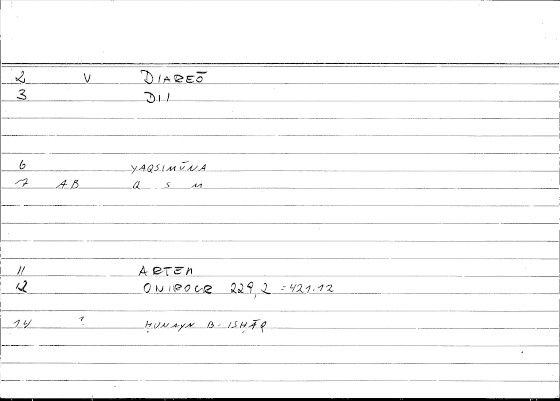 2 V DIAREŌ
3 DII
6 YAQSIMŪNA
7 AB Q S M
11 ARTEM
12 ONIROCR 229,2 =421.12
14 1 ḤUNAYN B-ISḤĀQ